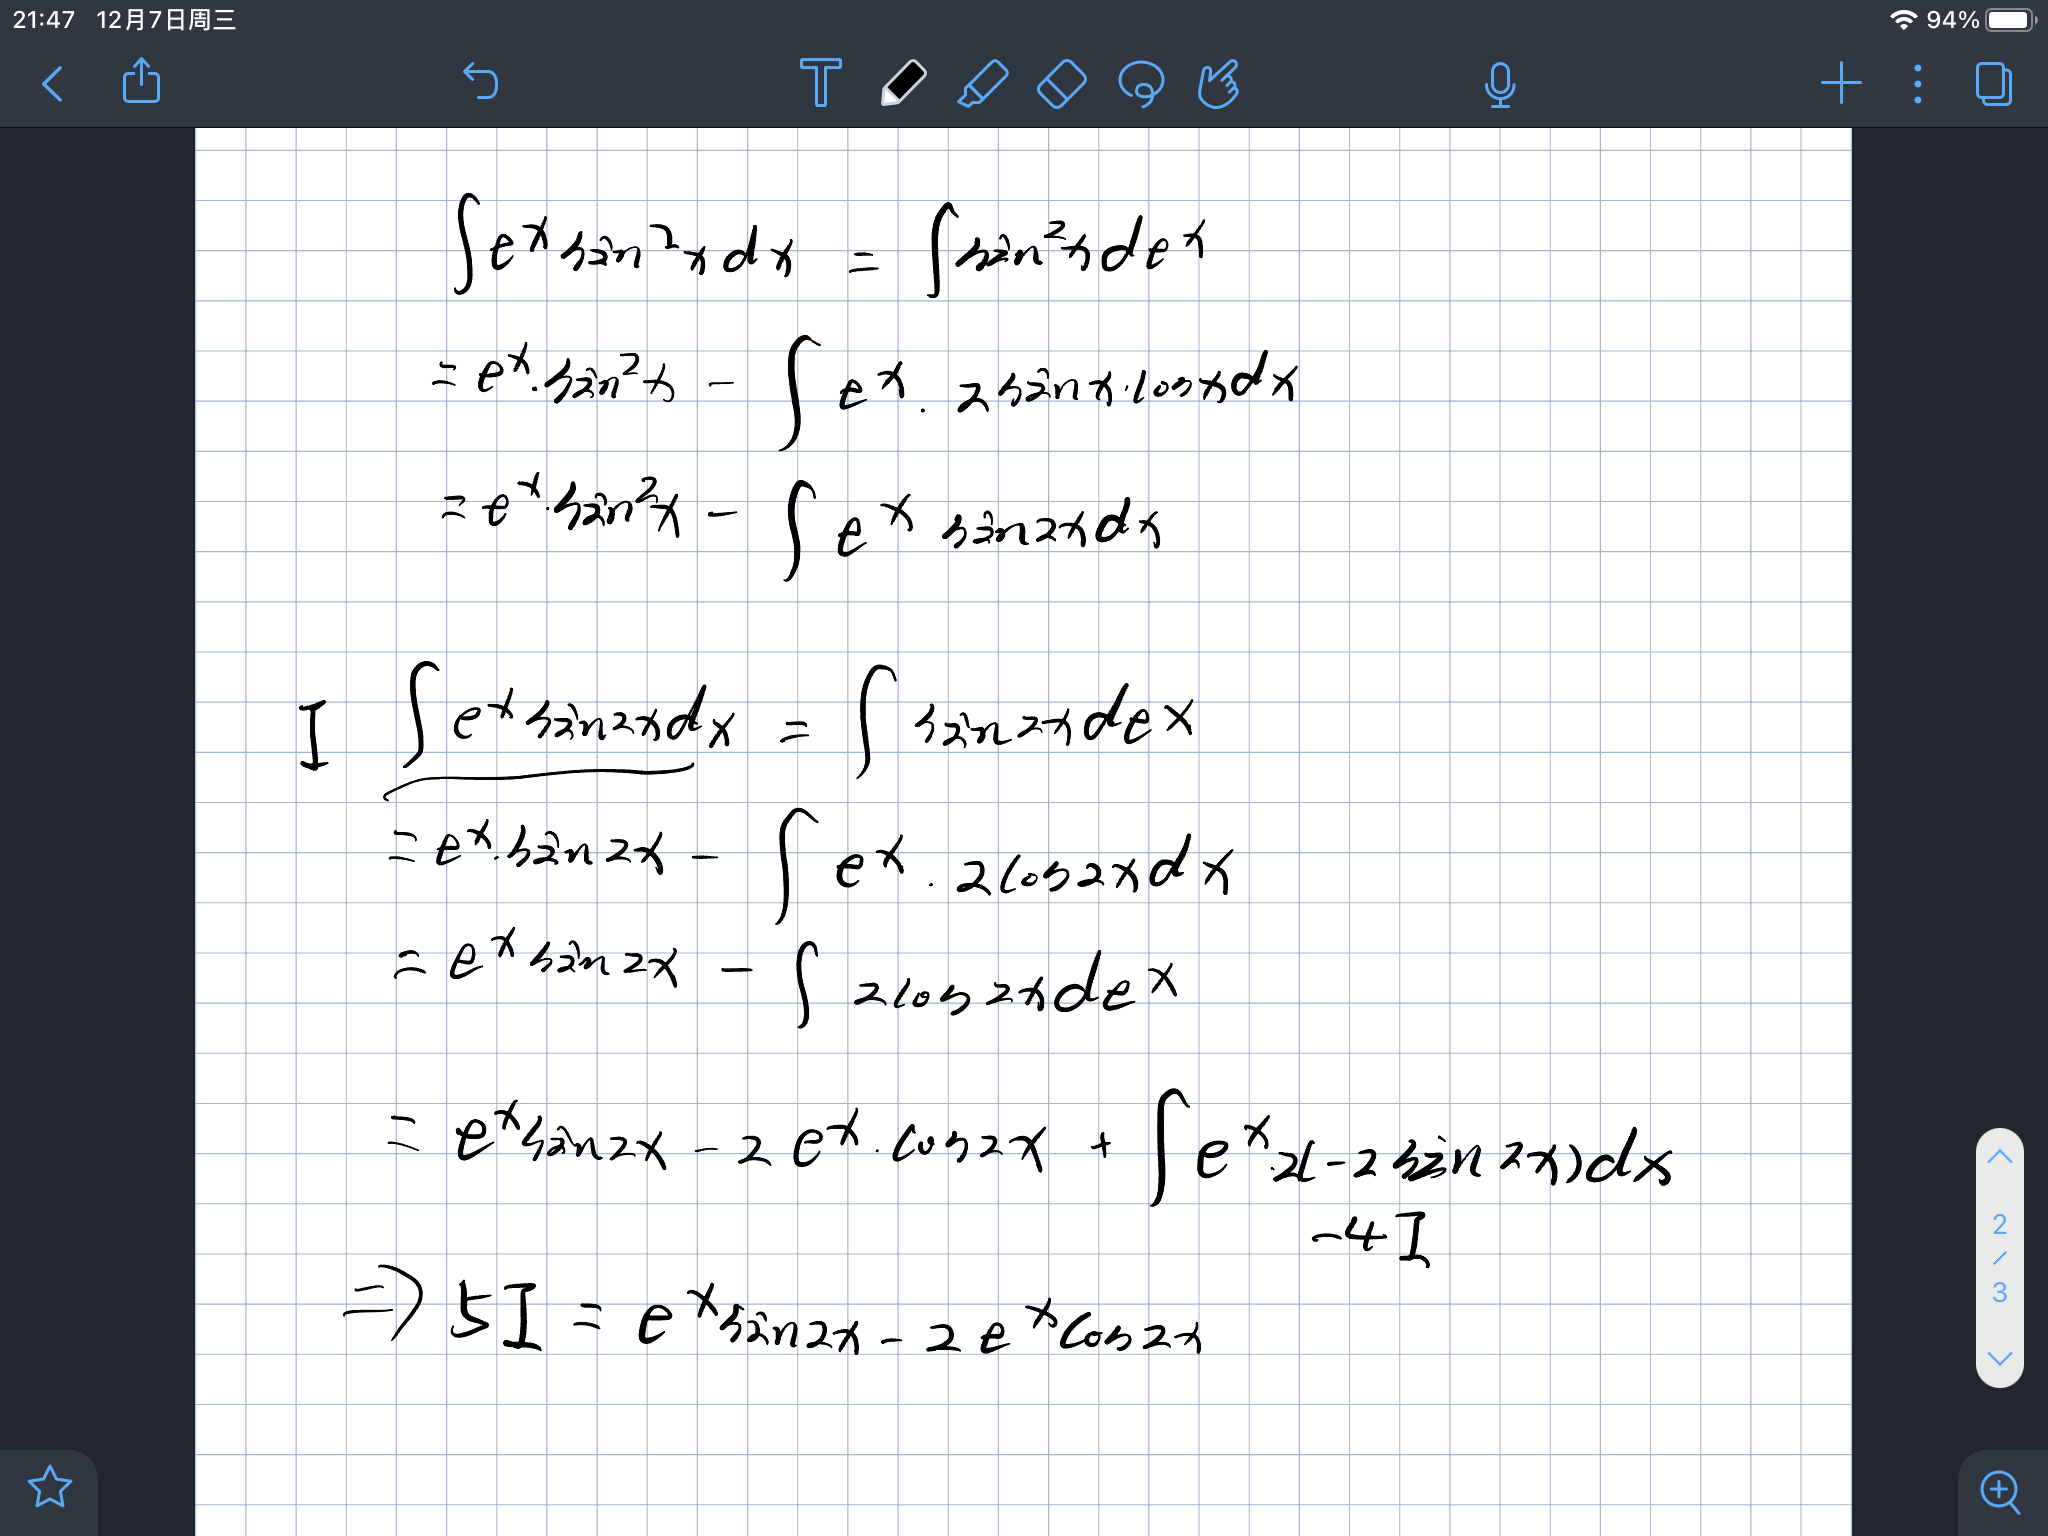 21:47 12月7日周三 94%
∫e^x sin²x dx = ∫sin²x de^x
= e^x·sin²x − ∫e^x·2sinx·cosxdx
= e^x·sin²x − ∫e^x sin2xdx
I ∫e^x sin2xdx = ∫sin2xde^x
= e^x·sin2x − ∫e^x·2cos2xdx
= e^x sin2x − ∫2cos2xde^x
= e^x sin2x − 2e^x·cos2x + ∫e^x·2(−2sin2x)dx
−4I
⇒ 5I = e^x sin2x − 2e^x cos2x
2
/
3